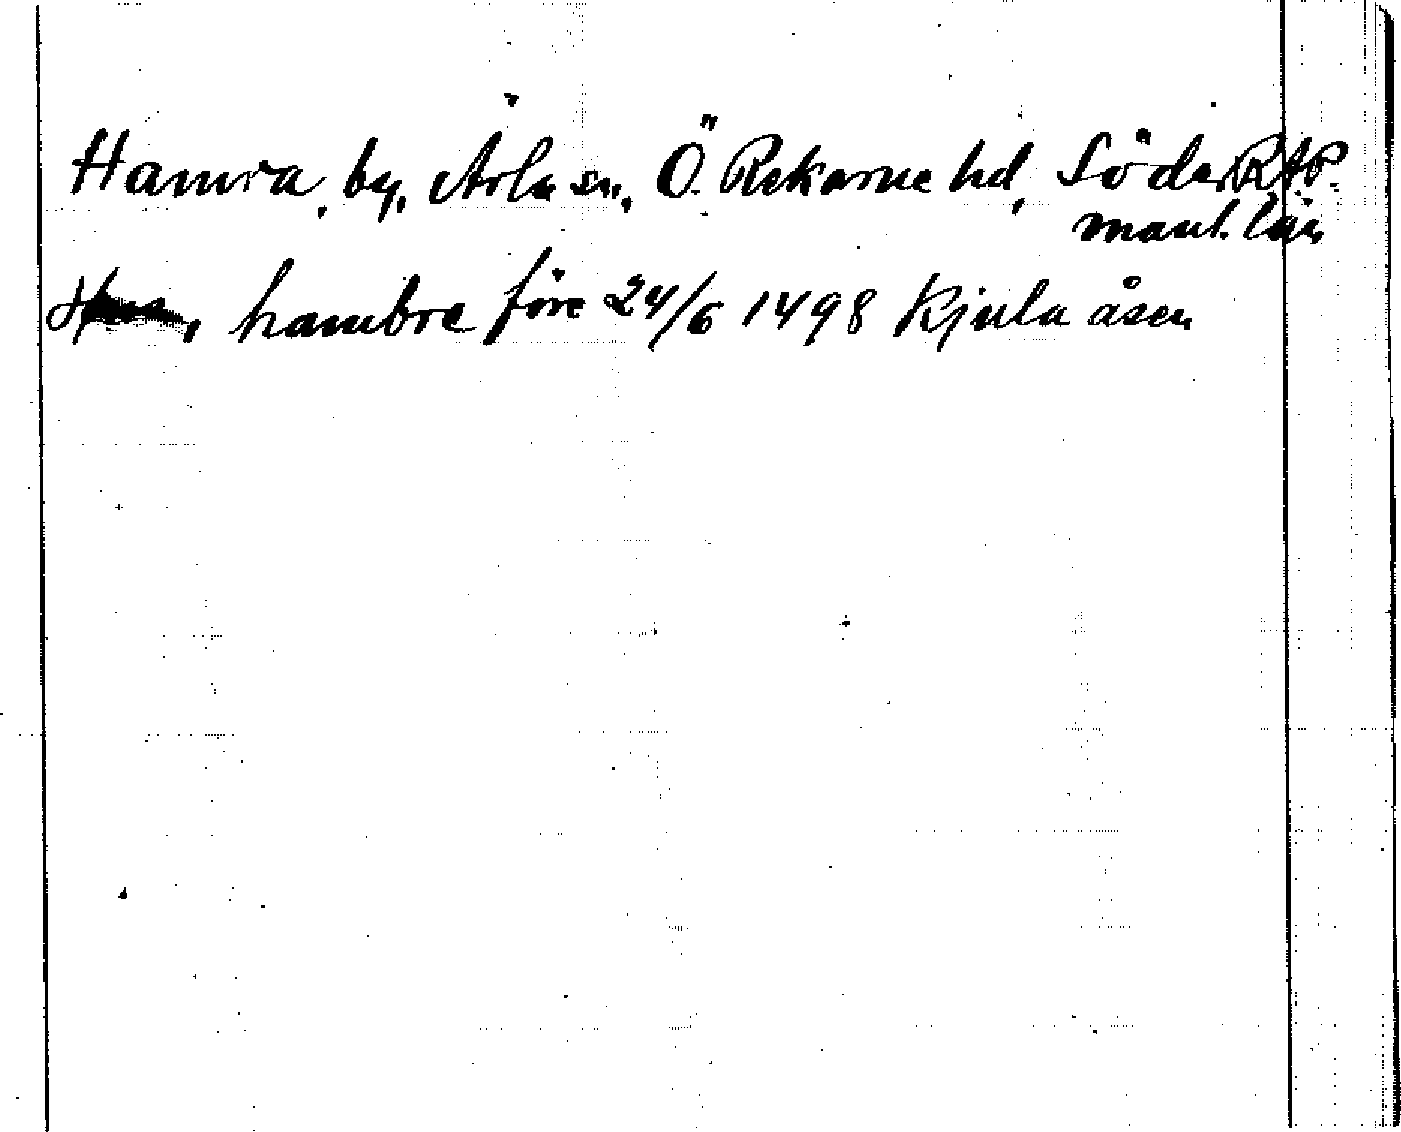 Hamra, by, Ärla sn, Ö. Rekarne hd, Söder RAP.
manl. län
hambre före 24/6 1498 Kjula åsen